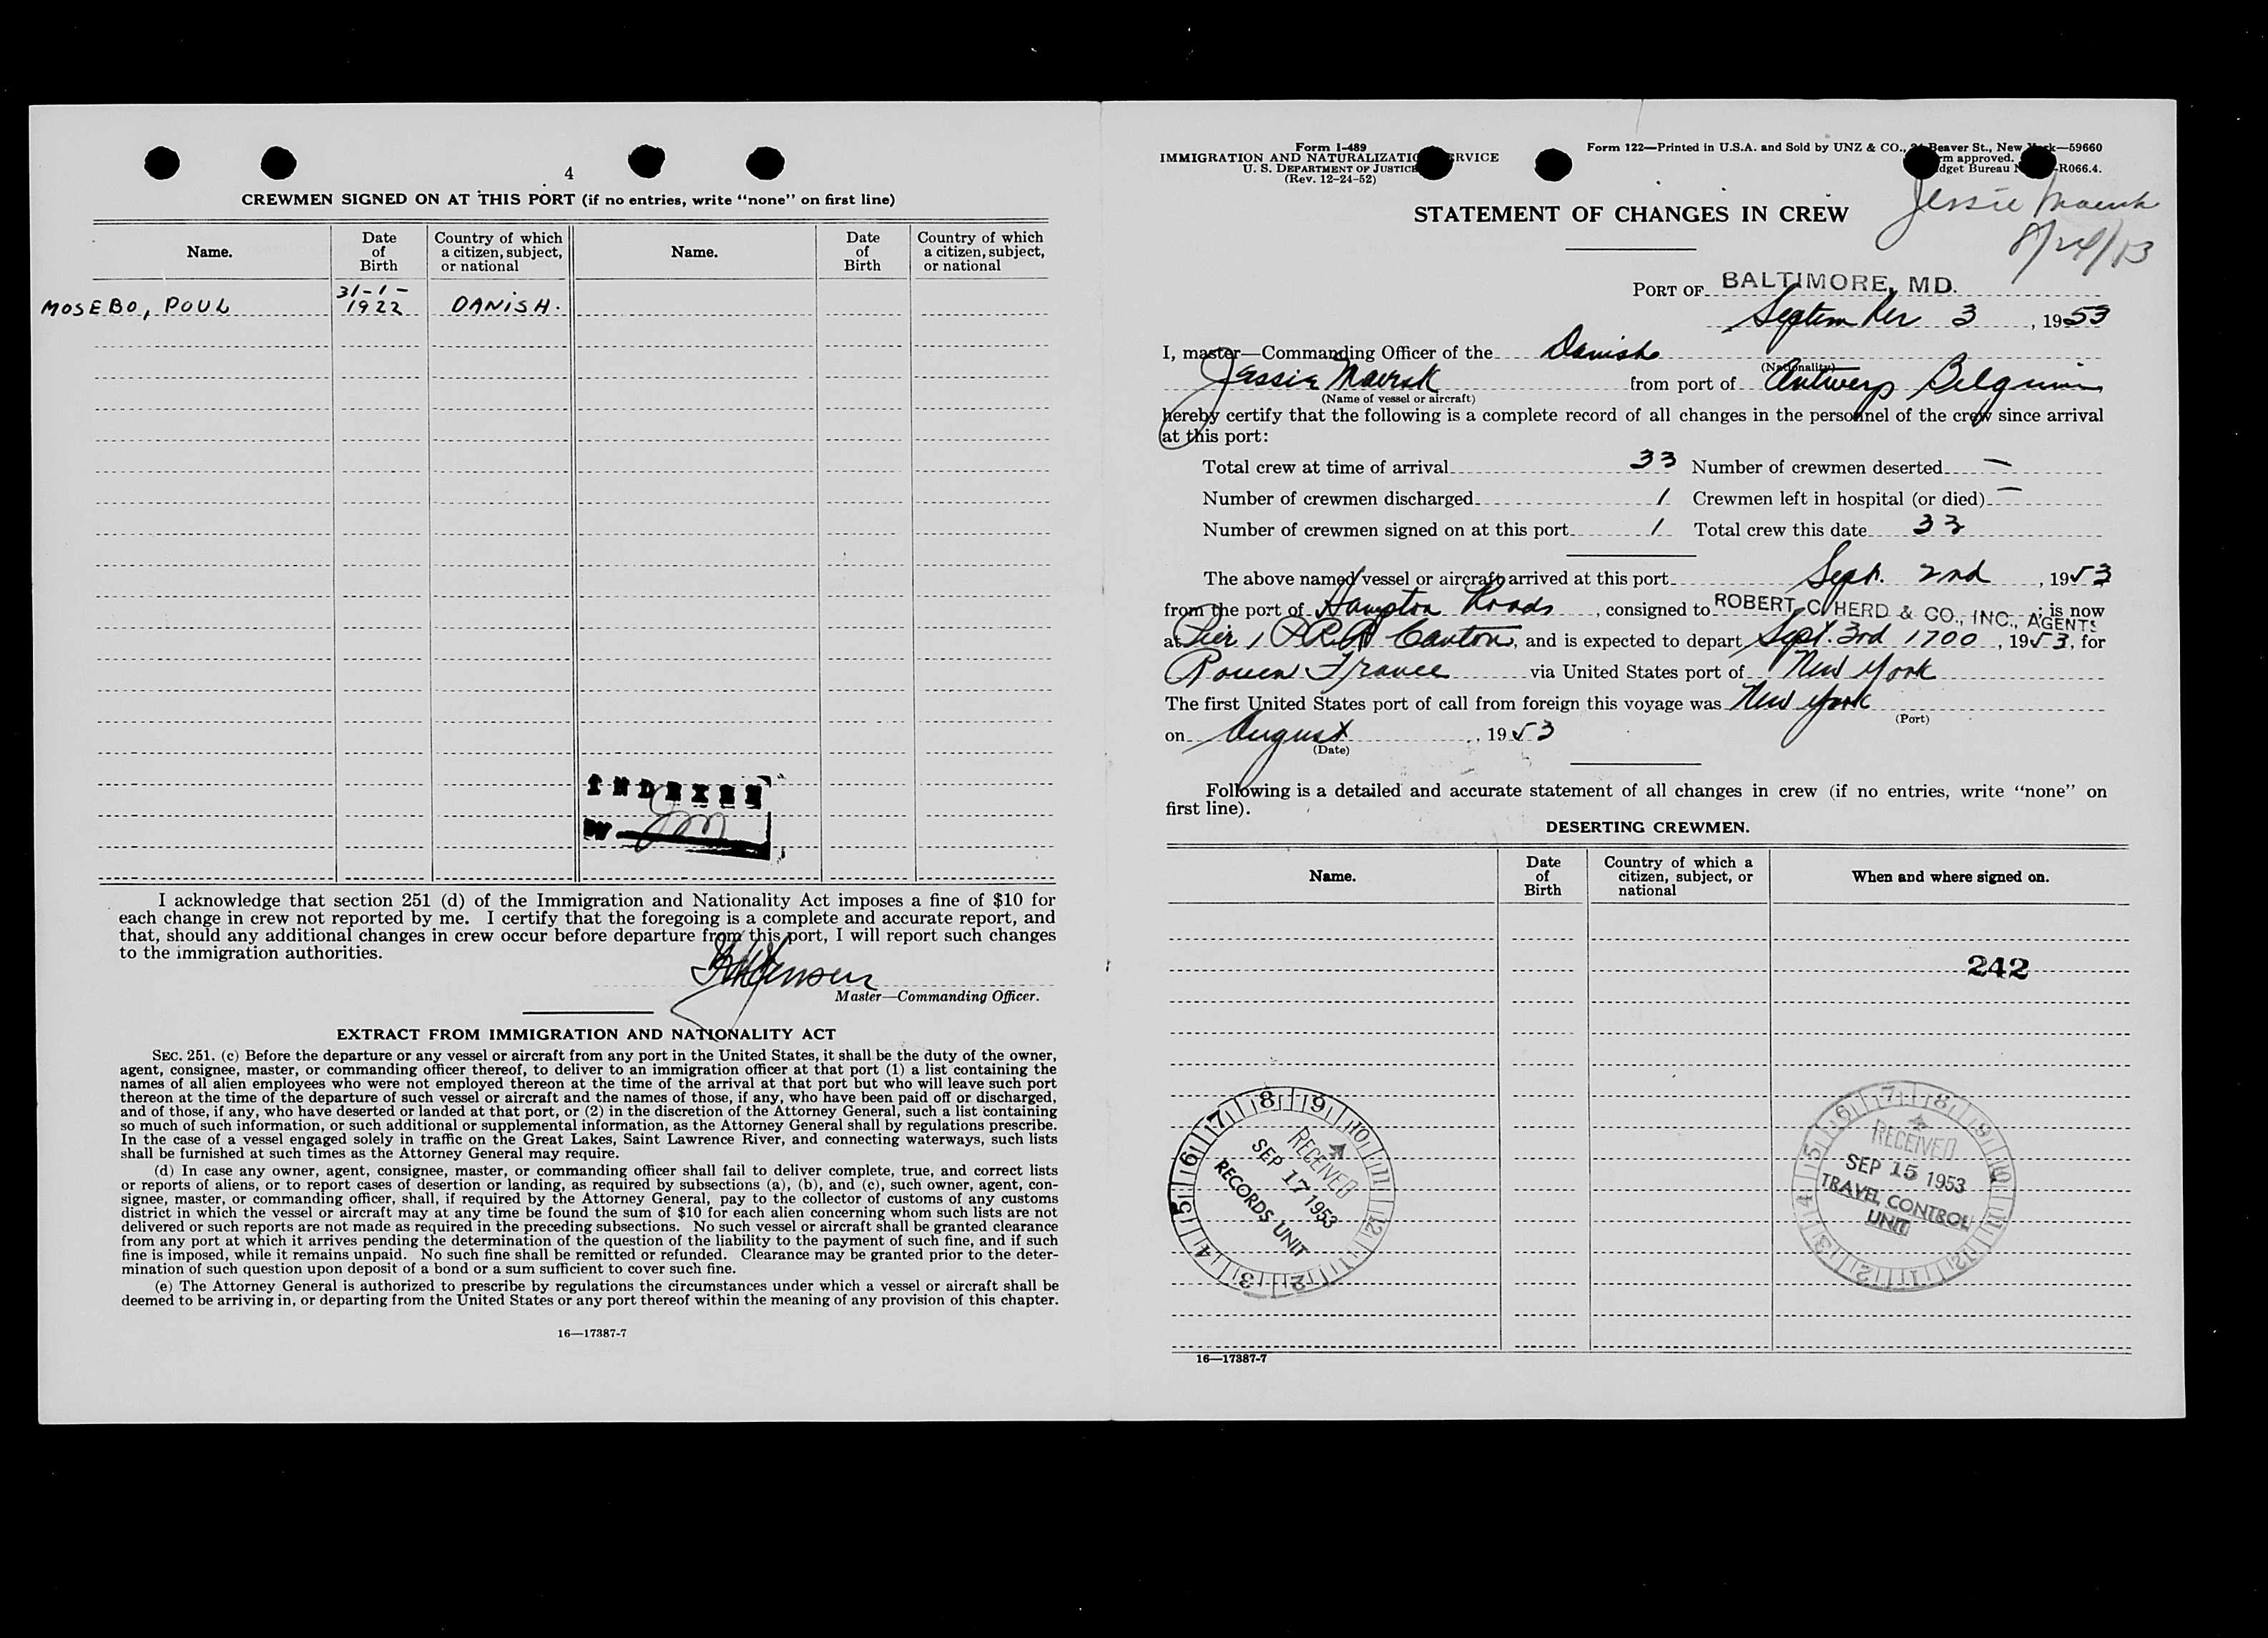 4
CREWMEN SIGNED ON AT THIS PORT (if no entries, write “none” on first line)
Name. Date of Birth Country of which a citizen, subject, or national Name. Date of Birth Country of which a citizen, subject, or national
MOSEBO, POUL 31-1-1922 DANISH.
INDEXED
BY
I acknowledge that section 251 (d) of the Immigration and Nationality Act imposes a fine of $10 for
each change in crew not reported by me. I certify that the foregoing is a complete and accurate report, and
that, should any additional changes in crew occur before departure from this port, I will report such changes
to the immigration authorities.
Master—Commanding Officer.
EXTRACT FROM IMMIGRATION AND NATIONALITY ACT
SEC. 251. (c) Before the departure or any vessel or aircraft from any port in the United States, it shall be the duty of the owner,
agent, consignee, master, or commanding officer thereof, to deliver to an immigration officer at that port (1) a list containing the
names of all alien employees who were not employed thereon at the time of the arrival at that port but who will leave such port
thereon at the time of the departure of such vessel or aircraft and the names of those, if any, who have been paid off or discharged,
and of those, if any, who have deserted or landed at that port, or (2) in the discretion of the Attorney General, such a list containing
so much of such information, or such additional or supplemental information, as the Attorney General shall by regulations prescribe.
In the case of a vessel engaged solely in traffic on the Great Lakes, Saint Lawrence River, and connecting waterways, such lists
shall be furnished at such times as the Attorney General may require.
(d) In case any owner, agent, consignee, master, or commanding officer shall fail to deliver complete, true, and correct lists
or reports of aliens, or to report cases of desertion or landing, as required by subsections (a), (b), and (c), such owner, agent, con-
signee, master, or commanding officer, shall, if required by the Attorney General, pay to the collector of customs of any customs
district in which the vessel or aircraft may at any time be found the sum of $10 for each alien concerning whom such lists are not
delivered or such reports are not made as required in the preceding subsections. No such vessel or aircraft shall be granted clearance
from any port at which it arrives pending the determination of the question of the liability to the payment of such fine, and if such
fine is imposed, while it remains unpaid. No such fine shall be remitted or refunded. Clearance may be granted prior to the deter-
mination of such question upon deposit of a bond or a sum sufficient to cover such fine.
(e) The Attorney General is authorized to prescribe by regulations the circumstances under which a vessel or aircraft shall be
deemed to be arriving in, or departing from the United States or any port thereof within the meaning of any provision of this chapter.
16—17387-7
Form I-489
IMMIGRATION AND NATURALIZATIO RVICE
U. S. DEPARTMENT OF JUSTICE
(Rev. 12-24-52)
Form 122—Printed in U.S.A. and Sold by UNZ & CO., Beaver St., New rk—59660
rm approved.
dget Bureau -R066.4.
Jessie Maersk
STATEMENT OF CHANGES IN CREW
PORT OF BALTIMORE, MD.
September 3, 1953
I, master—Commanding Officer of the Danish
(Nationality)
Jessie Maersk from port of Antwerp Belgium
(Name of vessel or aircraft)
hereby certify that the following is a complete record of all changes in the personnel of the crew since arrival
at this port:
Total crew at time of arrival 33 Number of crewmen deserted —
Number of crewmen discharged 1 Crewmen left in hospital (or died) —
Number of crewmen signed on at this port 1 Total crew this date 33
The above named vessel or aircraft arrived at this port Sept. 2nd, 1953
from the port of Hampton Roads, consigned to ROBERT C. HERD & CO., INC., AGENTS; is now
at Pier 1 PRR Canton, and is expected to depart Sept. 3rd 1700, 1953, for
Rouen France via United States port of New York
The first United States port of call from foreign this voyage was New York
(Port)
on August, 1953
(Date)
Following is a detailed and accurate statement of all changes in crew (if no entries, write “none” on
first line).
DESERTING CREWMEN.
Name. Date of Birth Country of which a citizen, subject, or national When and where signed on.
242
RECEIVED
SEP 17 1953
RECORDS UNIT
RECEIVED
SEP 15 1953
TRAVEL CONTROL
UNIT
16—17387-7